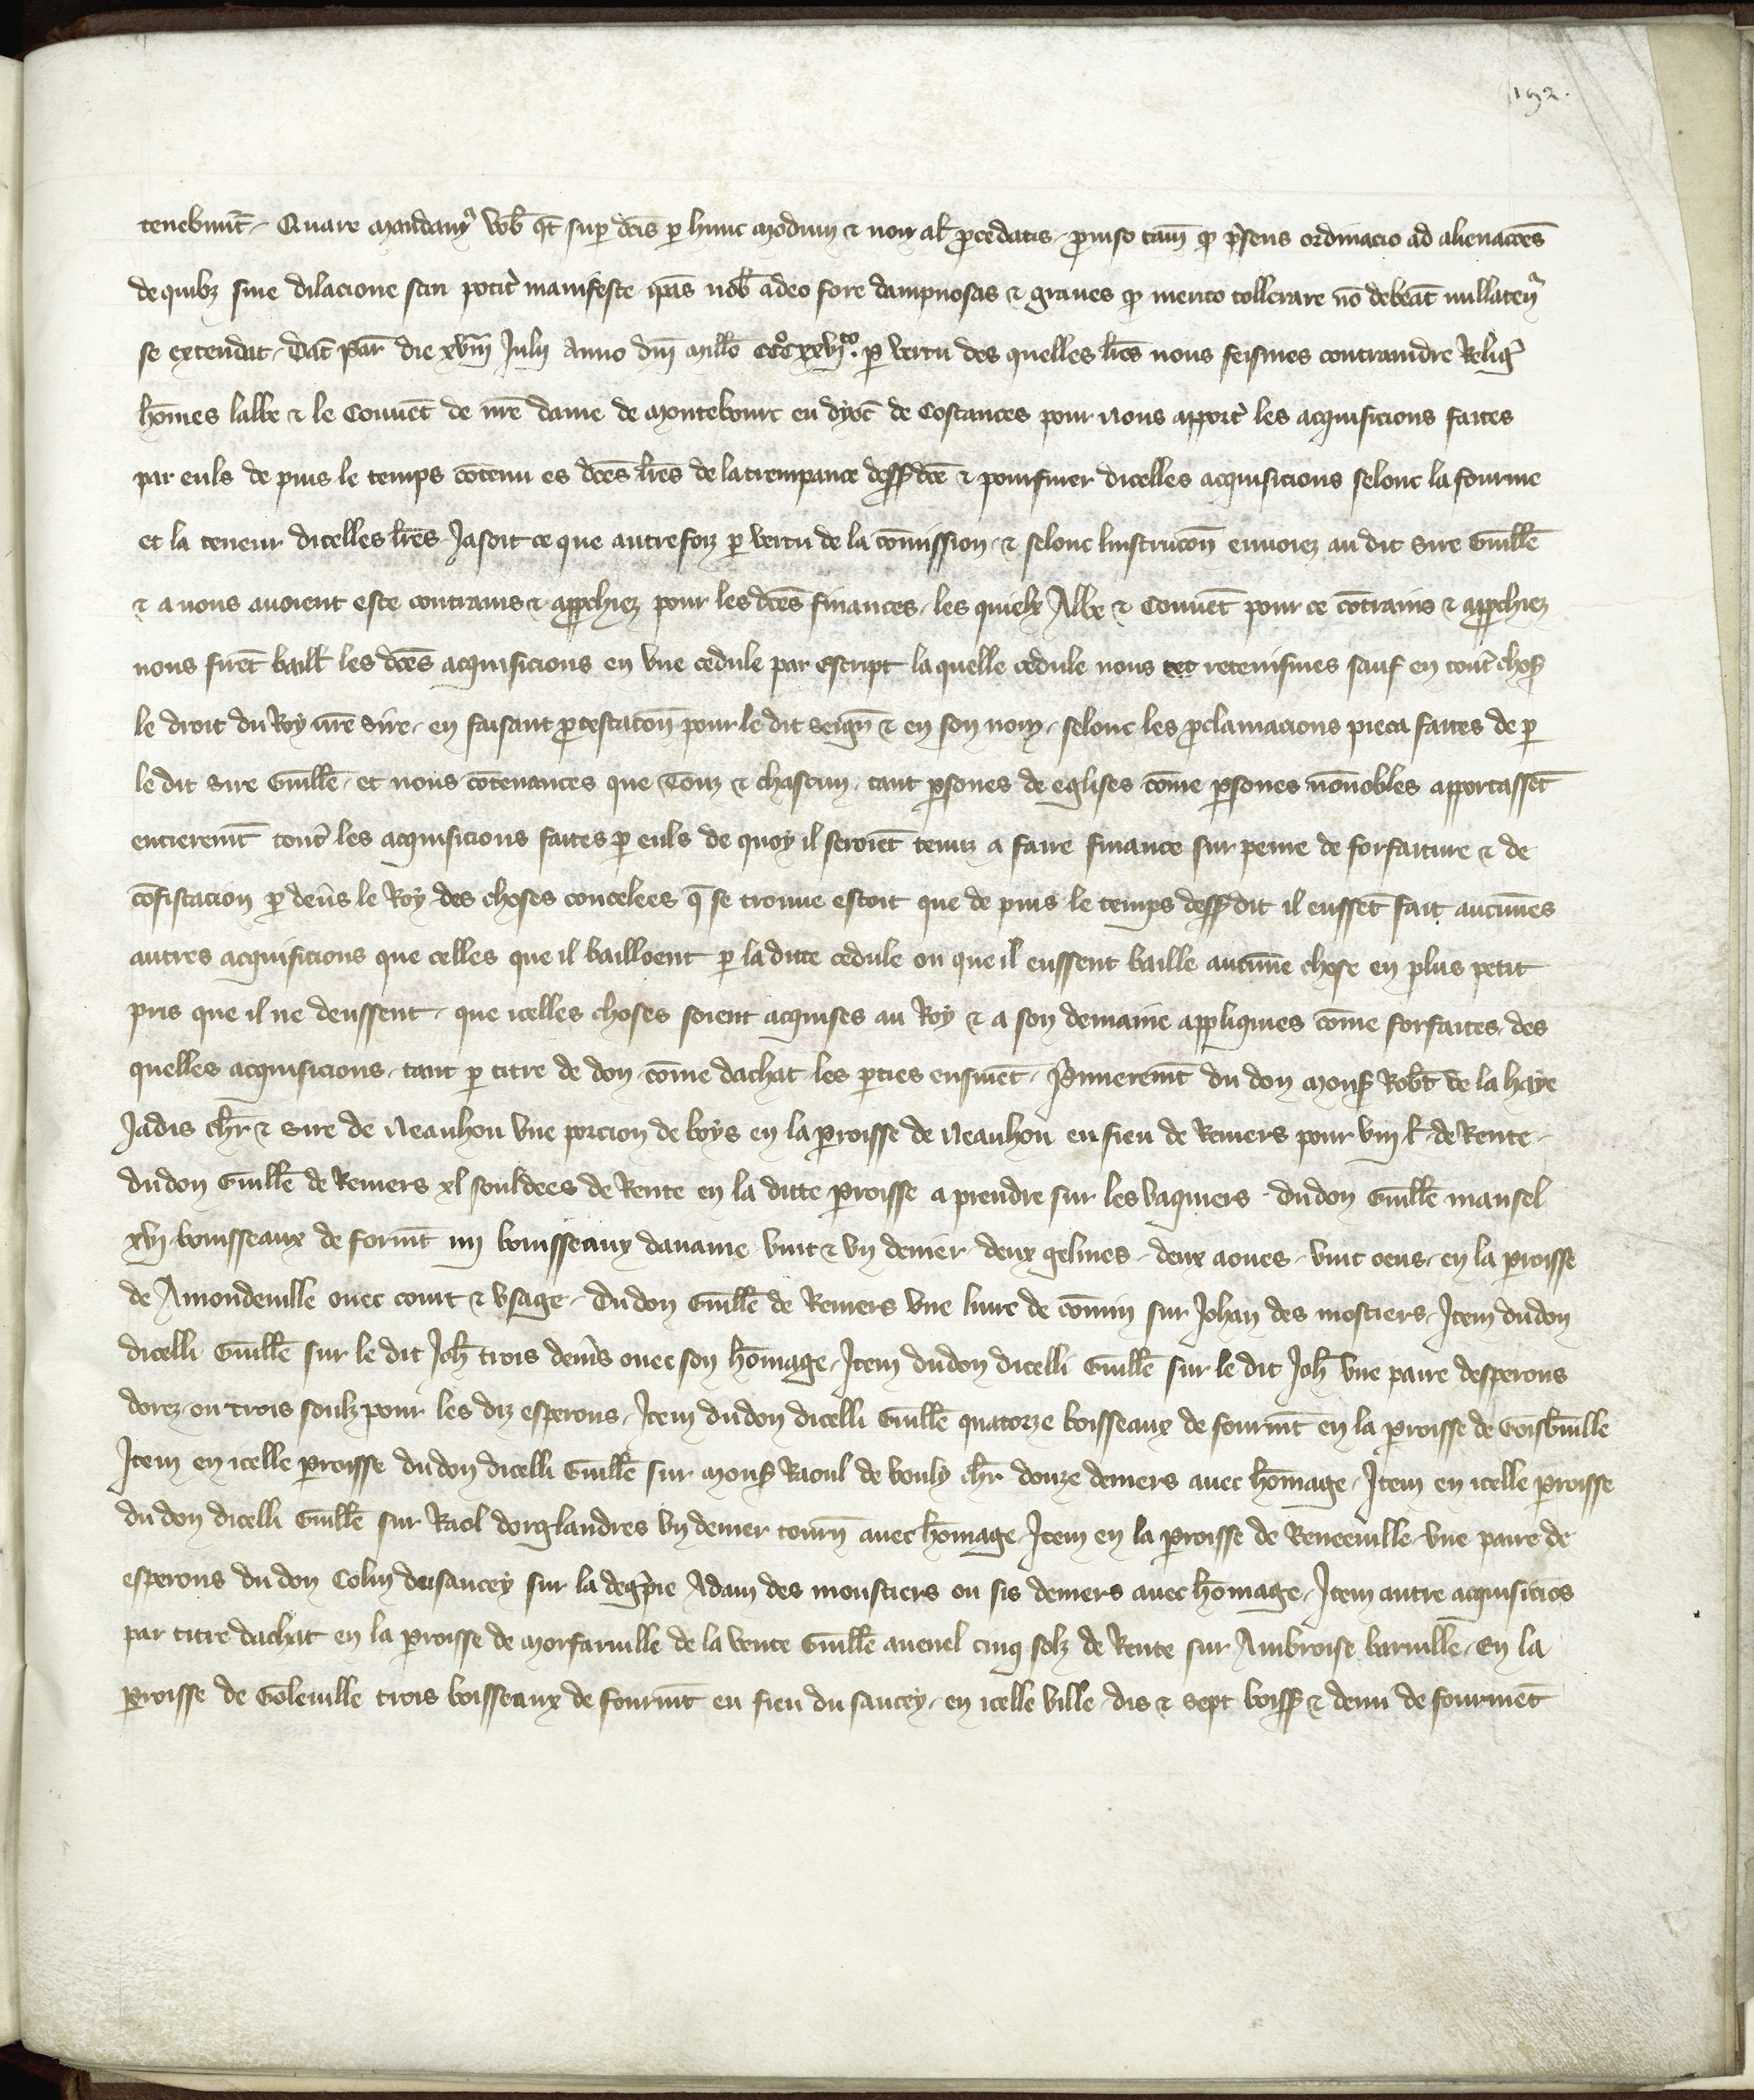 192.
tenebunt̄. Quare mandamꝰ vob̄ qt̄ sup̄ dc̄is p hunc modum ⁊ non al̄ pcedatis. puiso tam̄ qꝫ p̄sens ordinacio ad alienac̄oes
de quibꝫ sine dilacione sciri poter̄ manifeste ip̄as nob̄ adeo fore dampnosas ⁊ graues qꝫ merito tollerare nō debeāt nullatenꝰ
se extendat. Dat̄ par̄ die xviij Julij anno dn̄i mill̄o cccᵒ xxvjᵗᵒ. p vertu des quelles lr̄es nous feismes contraindre Religꝰ
hōmes labbe ⁊ le Conuēt de nr̄e dame de montebourc en dyoc̄ de Costances pour nous apport̄ les acquisicions faites
par euls de puis le temps cōtenu es dc̄es lr̄es de latrempance dess̄ dc̄e ⁊ pour finer dicelles acquisicions selonc la fourme
et la teneur dicelles lr̄es Ja soit ce que autrefoiz p vertu de la cōmission ⁊ selonc linstruc̄on enuoiez au dit sire Guill̄e
⁊ a nous auoient este contrains ⁊ approchiez pour les dc̄es finances. les quielx Abbe ⁊ Conuēt pour ce cōtrains ⁊ approchiez
nous firēt baill̄ les dc̄es acquisicions en vne cedule par escript la quelle cedule nous retenismes sauf en tout̄ chos̄
le droit du Roy nr̄e Sire. en faisant ptestac̄on pour le dit seign̄ ⁊ en son nom. selonc les pclamacions pieca faites de p
le dit sire Guill̄e. et nous cōtenances que Touz ⁊ chascun. tant psones de eglises cōme psones nōnobles apportassēt
entierem̄t tout̄ les acquisicions faites p euls de quoy il seroiēt tenuz a faire finance sur peine de forfaiture ⁊ de
cōfiscacion p deūs le Roy des choses concelees q̄ se trouue estoit que de puis le temps dess̄ dit il eussēt fait aucunes
autres acquisicions que celles que il bailloent p la ditte cedule ou que il eussent baille aucune chose en plus petit
pris que il ne deussent. que icelles choses soient acquises au Roy ⁊ a son demaine appliquies cōme forfaites. des
quelles acquisicions. tant p titre de don cōme dachat les pties ensuiuēt. Prmierem̄t du don mons̄ Rob̄t de la haye
Jadis chr̄ ⁊ sire de Neauhou vne porcion de boys en la proisse de Neauhou en fieu de Reuiers pour viij l̄ de Rente.
du don Guill̄e de Reuiers xl souldees de Rente en la ditte proisse a prendre sur les vaquiers. du don Guill̄e mansel
xvj bouisseaux de form̄t iiij bouisseaux dauaine vint ⁊ vn denier. deux gelines. deux aoues. vint oeus. en la proisse
de Amondeuille ouec court ⁊ vsage. du don Guill̄e de Reuiers vne liure de cōmin sur Johan des mostiers. Item du don
dicelli Guill̄e sur le dit Joh̄ trois deniꝰs ouec son hōmage. Item du don dicelli Guill̄e sur le dit Joh̄ vne paire desperons
dorez ou trois soulz pour les diz esperons. Item du don dicelli Guill̄e quatorze boisseaux de fourm̄t en la proisse de Goisb̄uille
Item en icelle proisse du don dicelli Guill̄e sur mons̄ Raoul de bouly chr̄ douze deniers auec hōmage. Item en icelle proisse
du don dicelli Guill̄e sur Raol dorglandres vn denier tourn̄ auec hōmage. Item en la proisse de Reneeuille vne paire de
esperons du don Colin du saucey sur la deḡpie Adam des moustiers ou sis deniers auec hōmage. Item autre acquisiciōs
par titre dachat en la proisse de morfaruille de la vente Guill̄e auenel cinq solz de Rente sur Ambroise baruille. En la
proisse de Goleuille trois boisseaux de fourm̄t en fieu du saucey. en icelle ville. dis ⁊ sept boiss̄ ⁊ demi de fourmēt